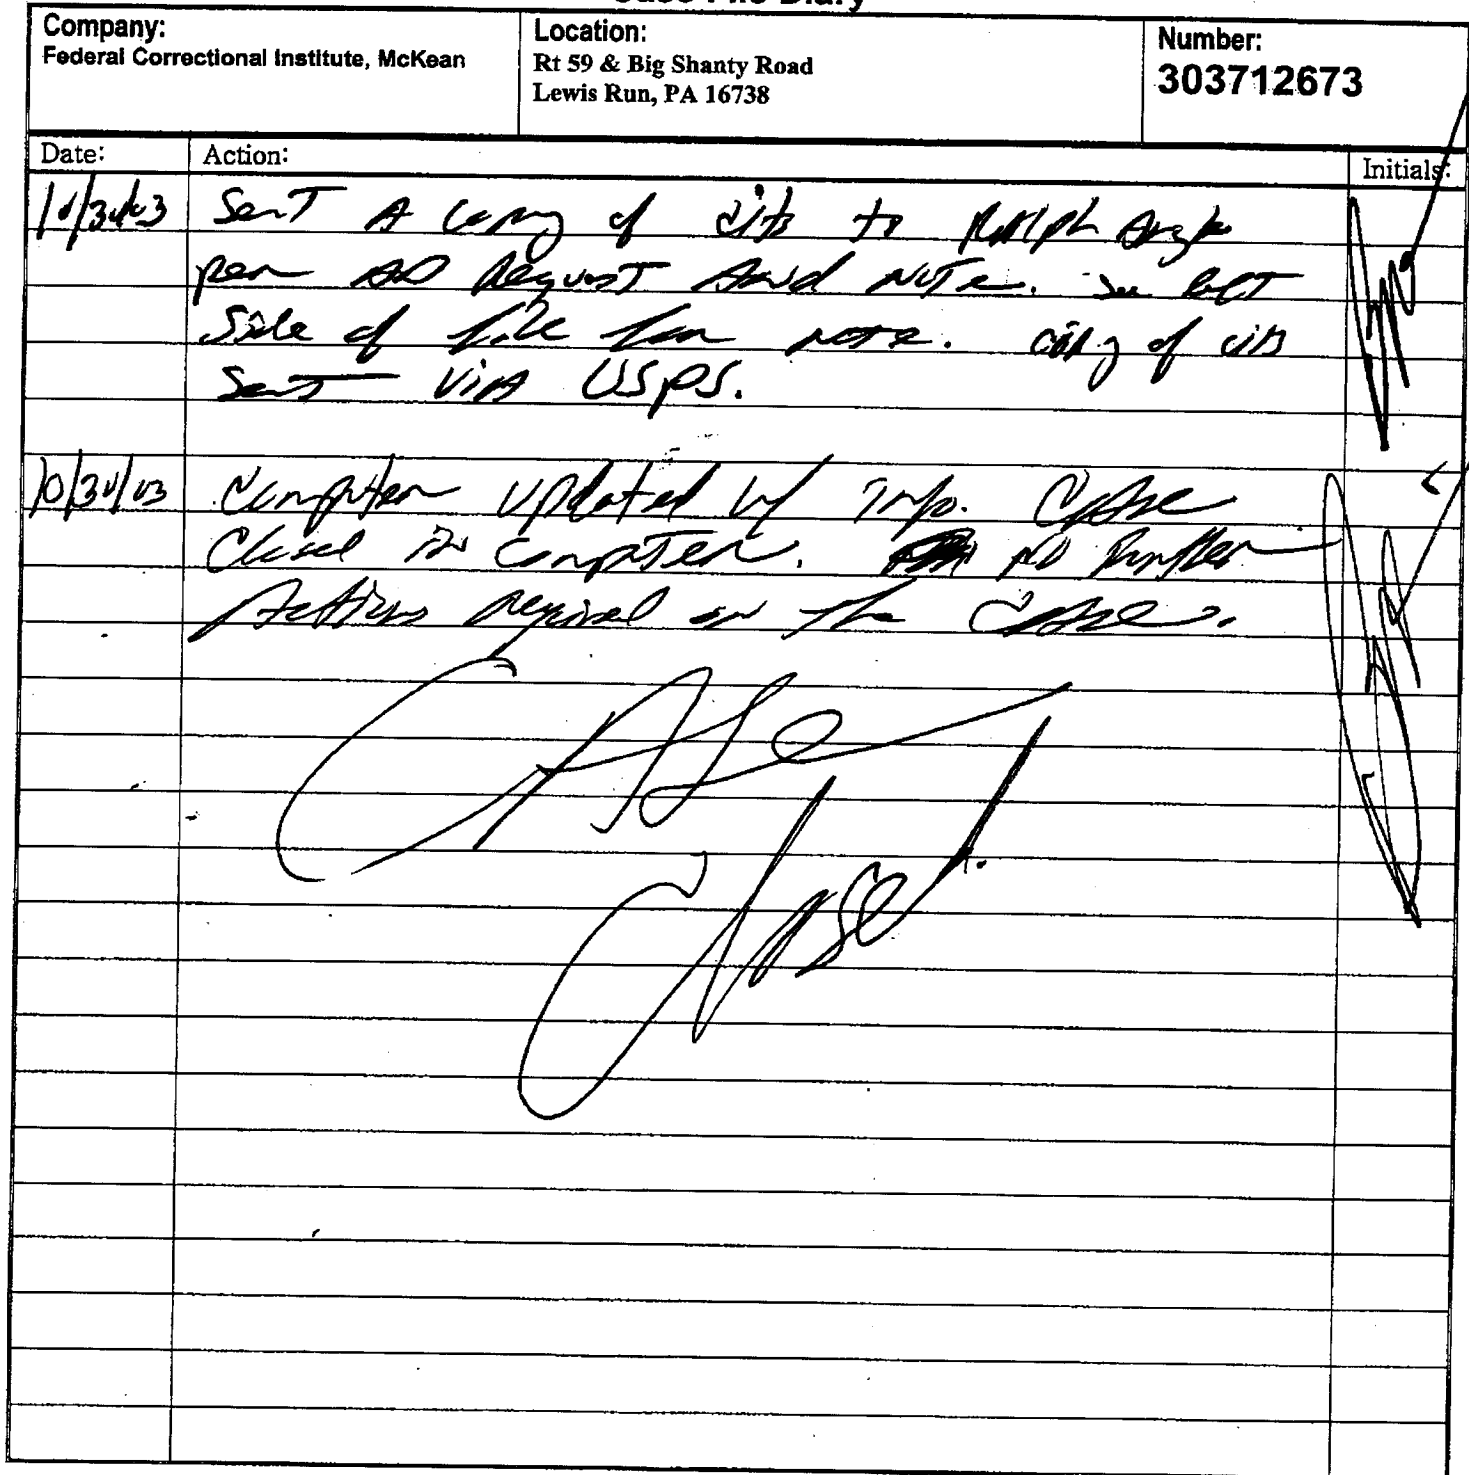 Case File Diary
Company:
Federal Correctional Institute, McKean
Location:
Rt 59 & Big Shanty Road
Lewis Run, PA 16738
Number:
303712673
Date:
Action:
Initials:
10/30/03
Sent A copy of cits to Ralph
per AD Request And Note. See left
Side of file for note. copy of cits
Sent via USPS.
10/30/03
Computer updated w/ info. Case
Closed in computer. No further
Actions required on the Case.
CASE
Closed.